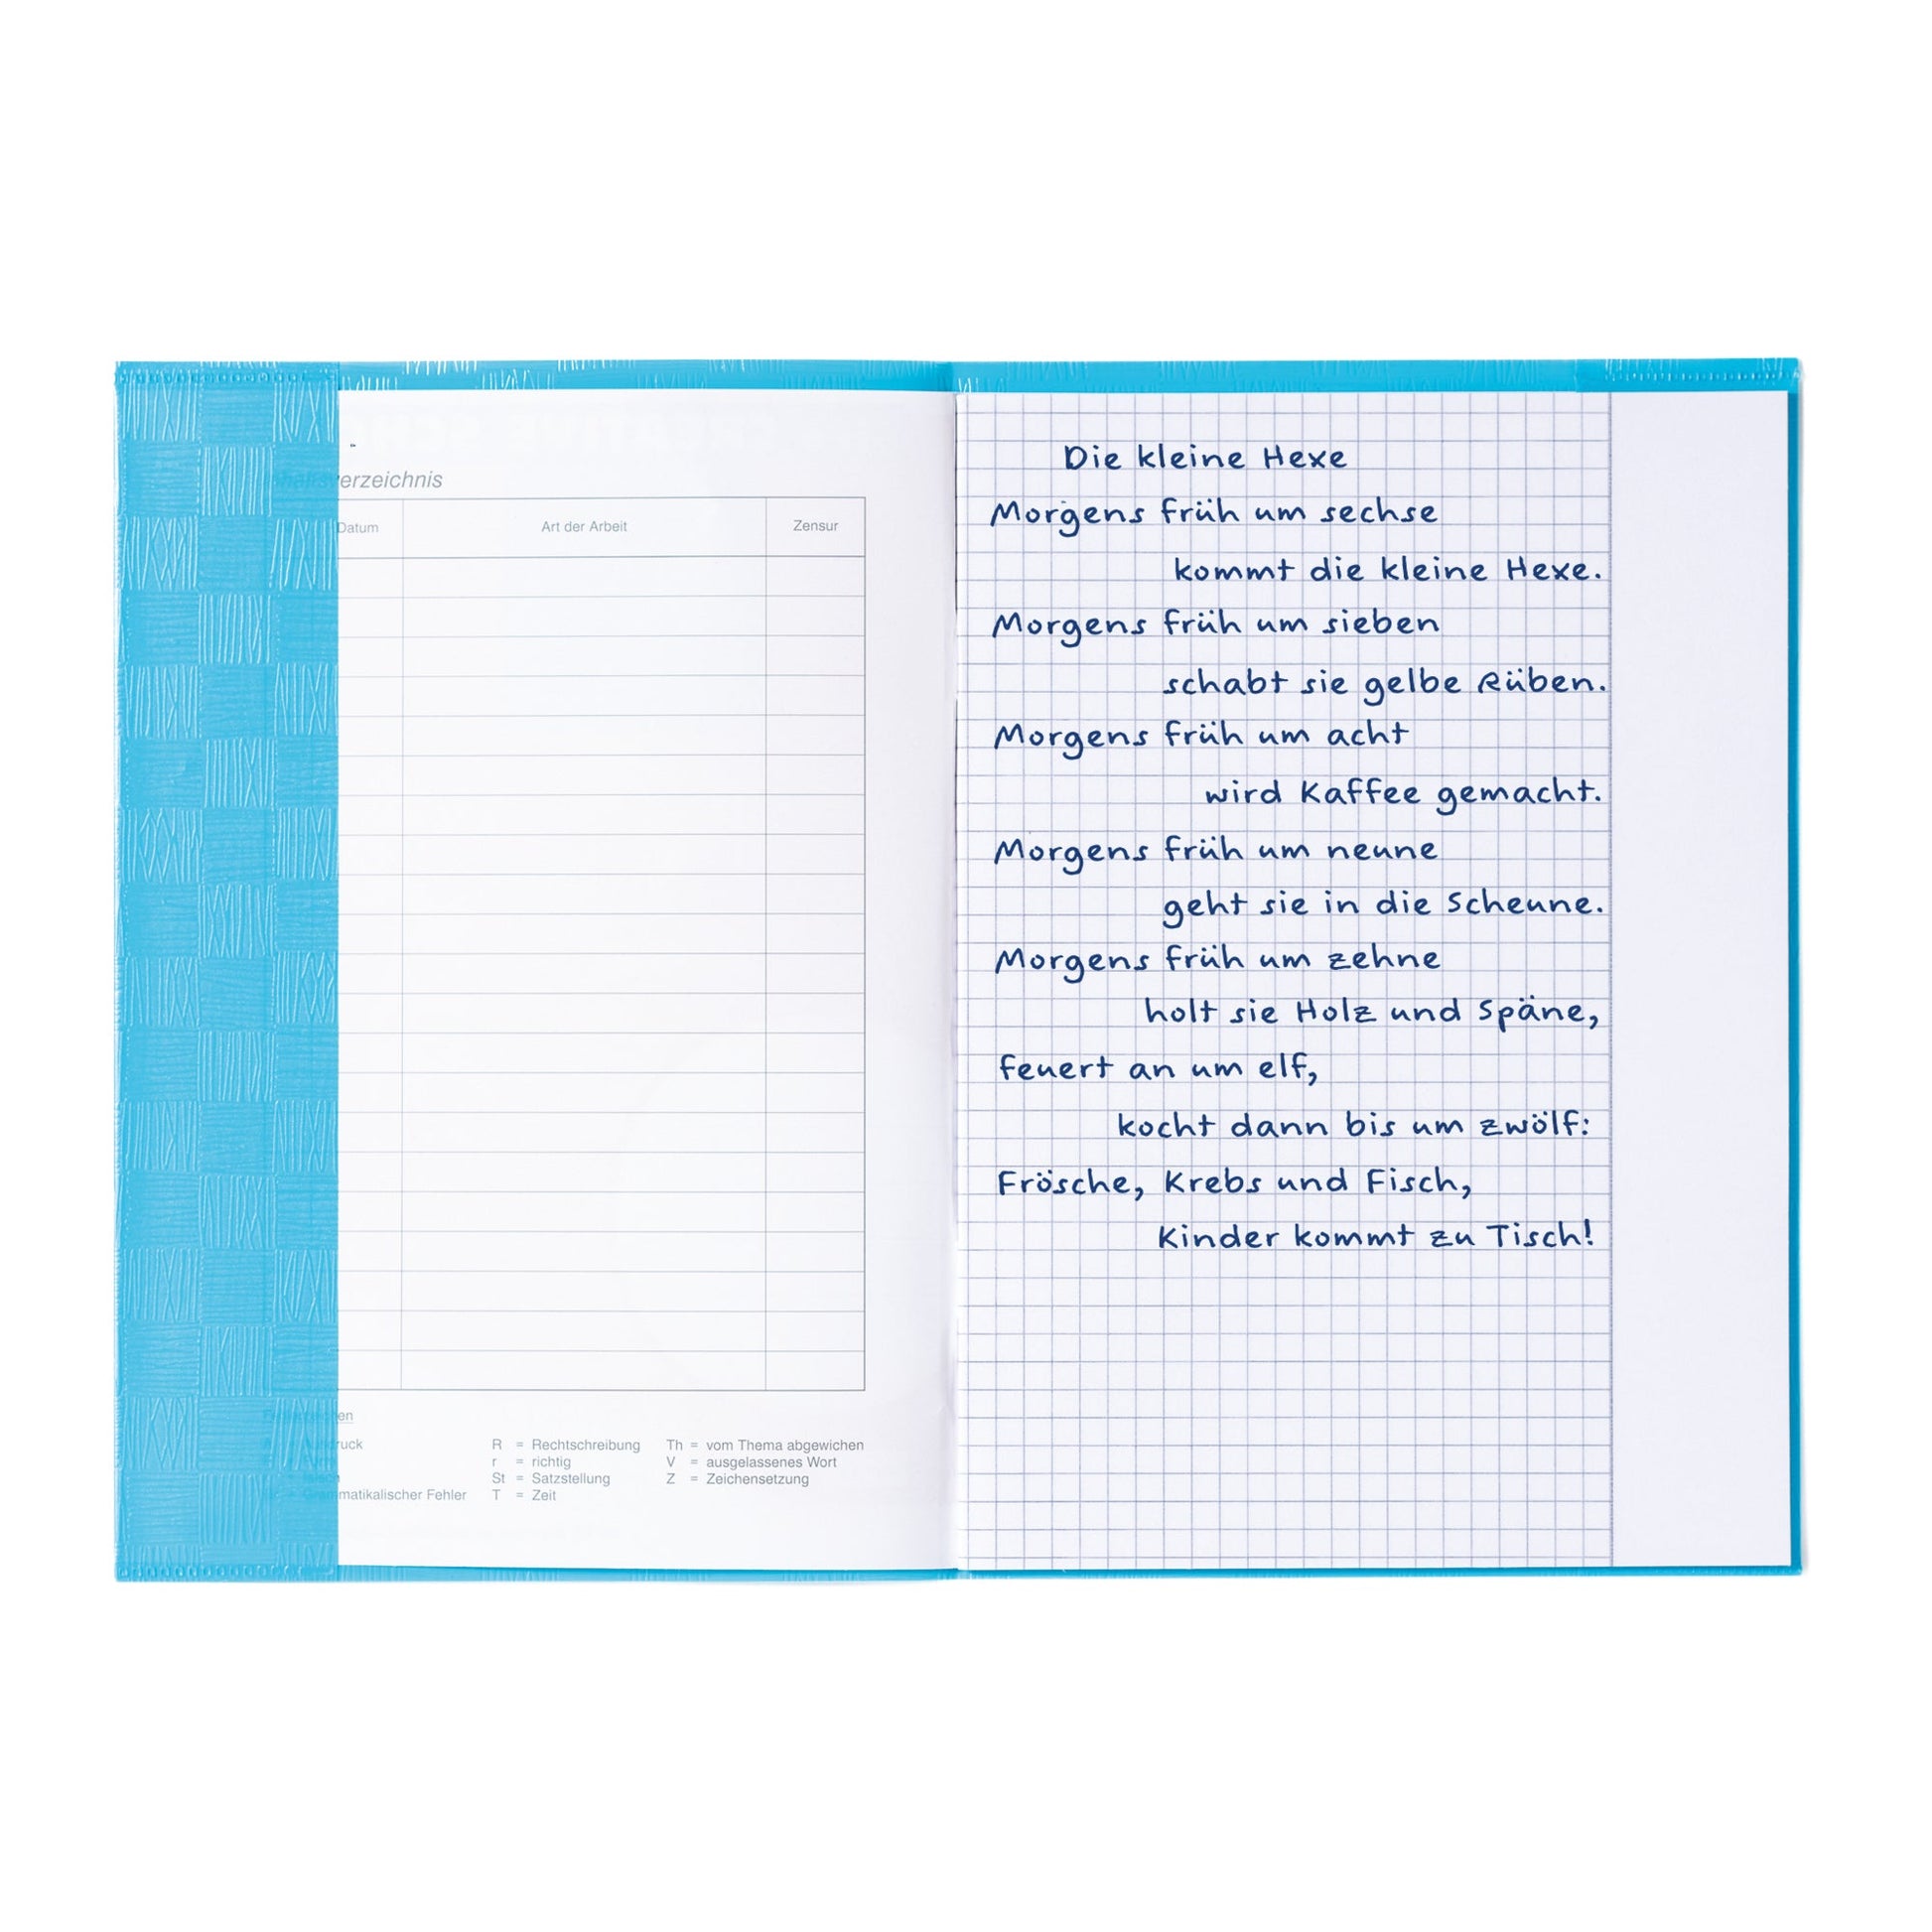 verzeichnis
Datum Art der Arbeit Zensur
Die kleine Hexe
Morgens früh um sechse
kommt die kleine Hexe.
Morgens früh um sieben
schabt sie gelbe Rüben.
Morgens früh um acht
wird Kaffee gemacht.
Morgens früh um neune
geht sie in die Scheune.
Morgens früh um zehne
holt sie Holz und Späne,
feuert an um elf,
kocht dann bis um zwölf:
Frösche, Krebs und Fisch,
Kinder kommt zu Tisch!
R = Rechtschreibung Th = vom Thema abgewichen
r = richtig V = ausgelassenes Wort
St = Satzstellung Z = Zeichensetzung
Grammatikalischer Fehler T = Zeit